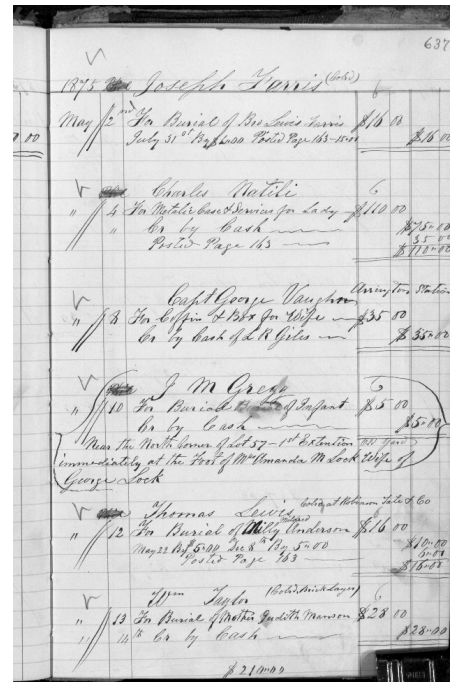 637
1875 Joseph Farris (Cold)
May 2nd For Burial of Bro Lewis Farris $16 00
July 31st By $1.00 Posted Page 163 - 15.00 $16 00
Charles Natili 6
" 4 For Metalic Case & Services for Lady $110 00
" Cr by Cash $75.00
Posted Page 163 35 00
$110.00
Capt George Vaughn Arrington Station
" 8 For Coffin & Box for Wife $35 00
Cr by Cash of L R Giles $35.00
J M Gregg 6
" 10 For Burial of Infant $5 00
Cr by Cash $5.00
Near the North Corner of Lot 57 - 1st Extention Old Yard
immediately at the Foot of Mrs Amanda M Lock Wife of
George Lock
Thomas Lewis Cold, at Robinson Tate & Co
" 12 For Burial of Milly Anderson $16 00
May 22 By $5.00 Dec 8th By 5.00 $10.00
Posted Page 163 6.00
$16.00
Wm Taylor (Cold, Brick Layer) 6
" 13 For Burial of Mother Judith Manson $28 00
" 14th Cr by Cash $28.00
$210.00